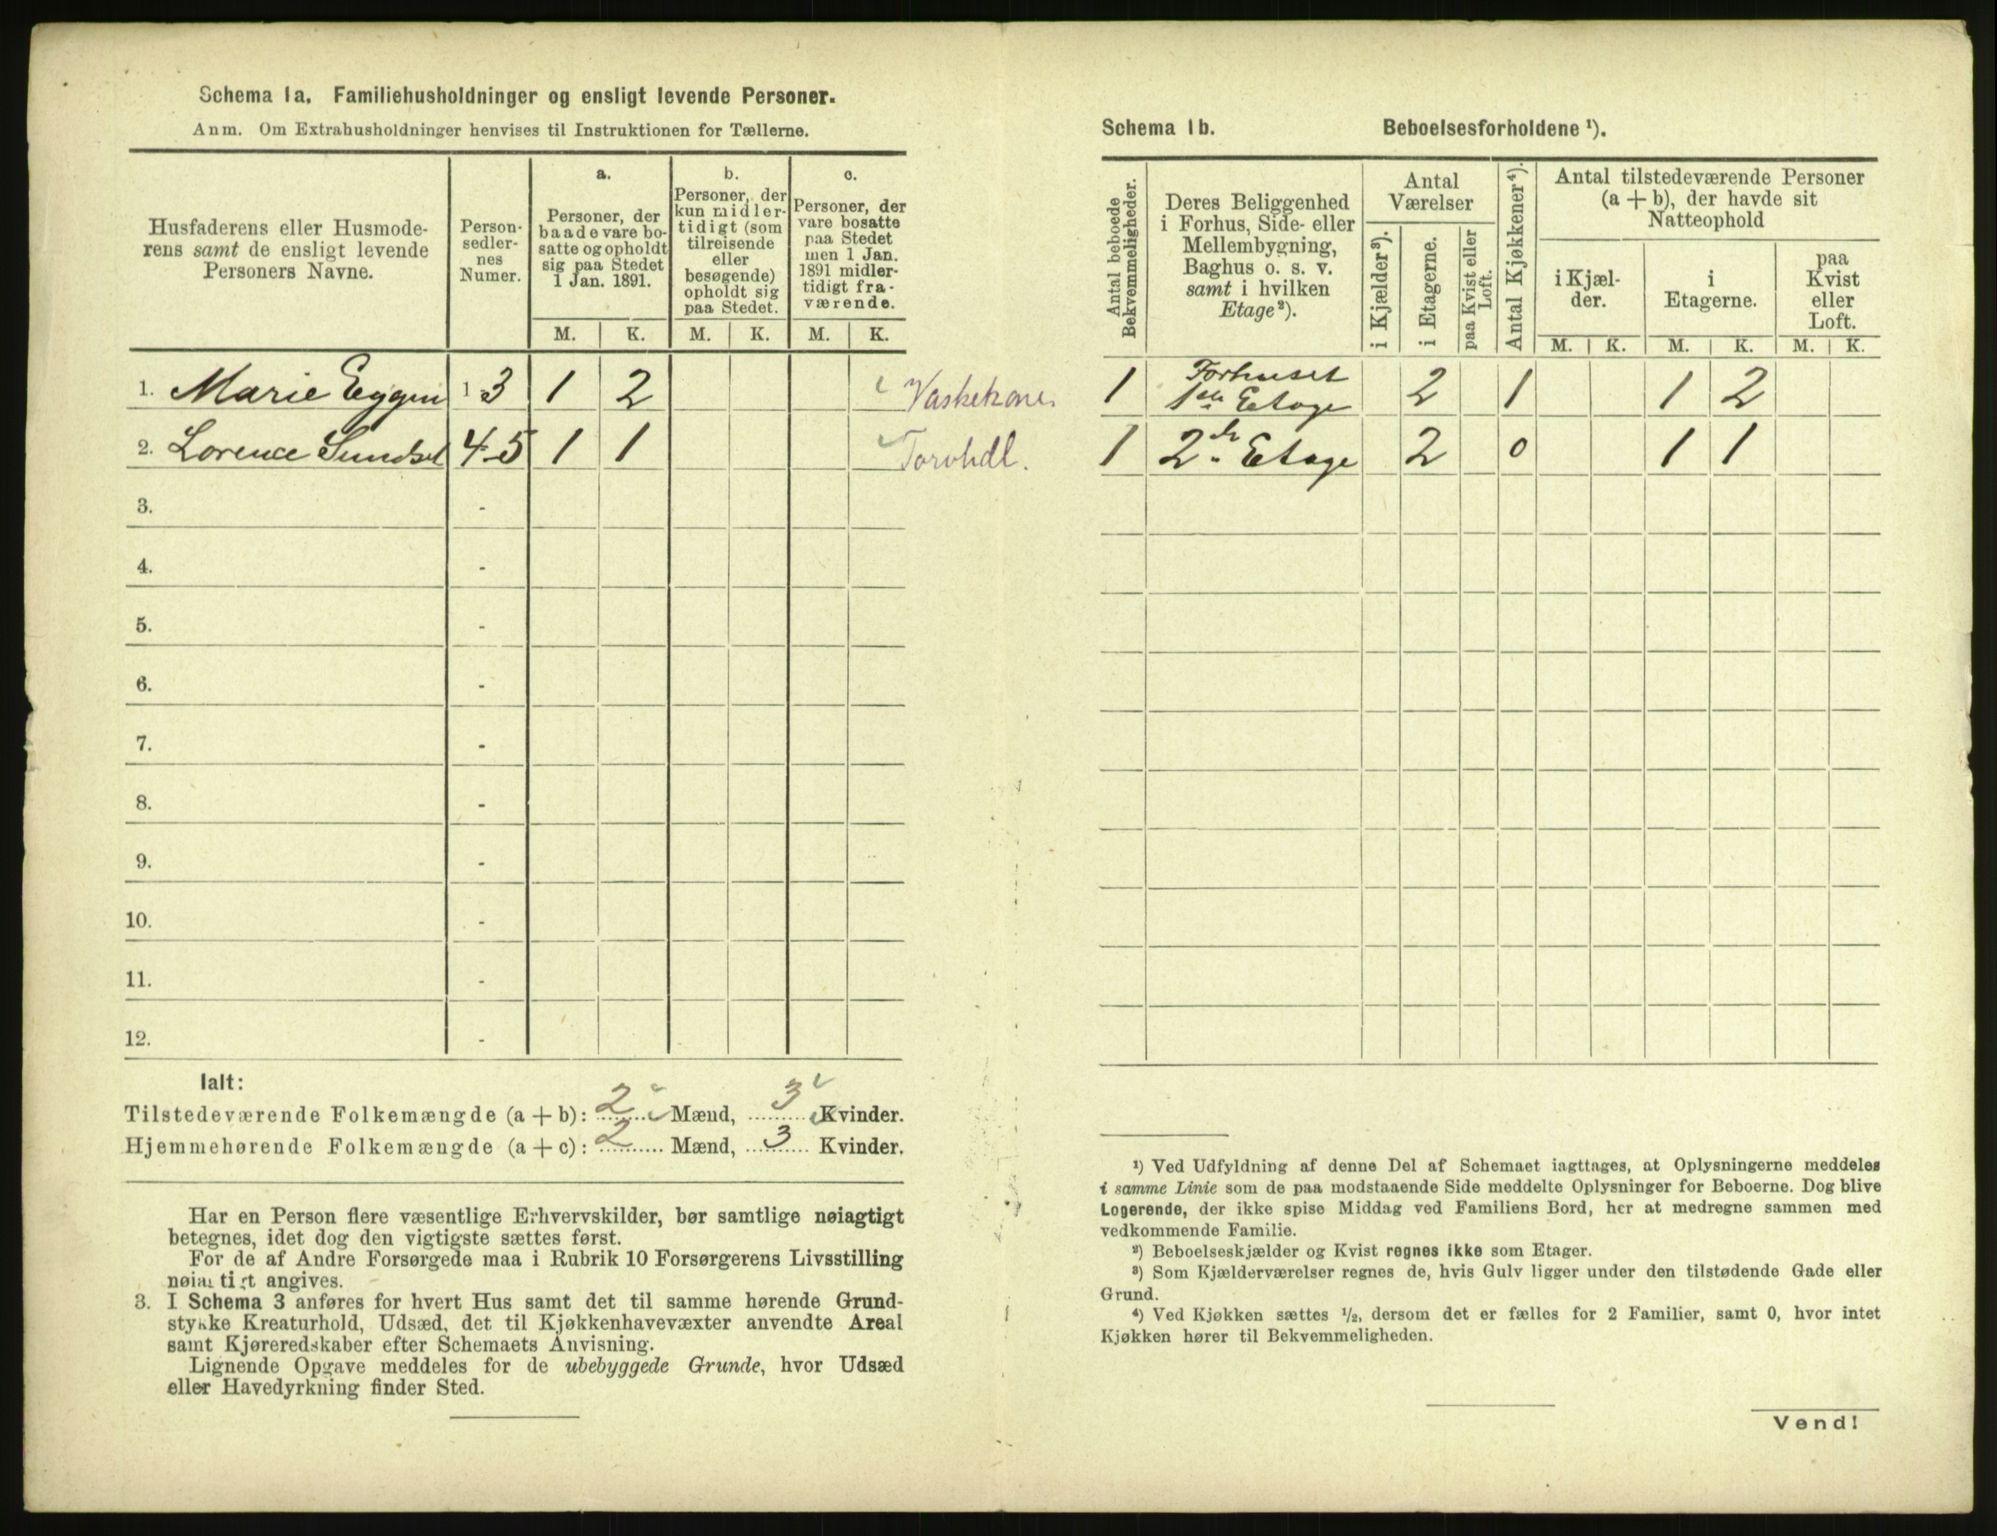 Schema 1a. Familiehusholdninger og ensligt levende Personer.
Anm. Om Extrahusholdninger henvises til Instruktionen for Tællerne.
Husfaderens eller Husmode-
rens samt de ensligt levende
Personers Navne.
Person-
sedler-
nes
Numer.
a.
Personer, der
baade vare bo-
satte og opholdt
sig paa Stedet
1 Jan. 1891.
b.
Personer, der
kun midler-
tidigt (som
tilreisende
eller
besøgende)
opholdt sig
paa Stedet.
c.
Personer, der
vare bosatte
paa Stedet
men 1 Jan.
1891 midler-
tidigt fra-
værende.
M. K. M. K. M. K.
1. Marie Eggen 1-3 1 2 Vaskekone
2. Lorence Sundset 4-5 1 1 Torvhdl.
3. -
4. -
5. -
6. -
7. -
8. -
9. -
10. -
11. -
12. -
Ialt:
Tilstedeværende Folkemængde (a + b): 2 Mænd, 3 Kvinder.
Hjemmehørende Folkemængde (a + c): 2 Mænd, 3 Kvinder.
Har en Person flere væsentlige Erhvervskilder, bør samtlige nøiagtigt
betegnes, idet dog den vigtigste sættes først.
For de af Andre Forsørgede maa i Rubrik 10 Forsørgerens Livsstilling
nøiagtigt angives.
3. I Schema 3 anføres for hvert Hus samt det til samme hørende Grund-
stykke Kreaturhold, Udsæd, det til Kjøkkenhavevæxter anvendte Areal
samt Kjøreredskaber efter Schemaets Anvisning.
Lignende Opgave meddeles for de ubebyggede Grunde, hvor Udsæd
eller Havedyrkning finder Sted.
Schema 1b. Beboelsesforholdene ¹).
Antal beboede
Bekvemmeligheder.
Deres Beliggenhed
i Forhus, Side- eller
Mellembygning,
Baghus o. s. v.
samt i hvilken
Etage ²).
Antal
Værelser
i Kjælder ³).
i Etagerne.
paa Kvist eller
Loft.
Antal Kjøkkener ⁴).
Antal tilstedeværende Personer
(a + b), der havde sit
Natteophold
i Kjæl-
der.
i
Etagerne.
paa
Kvist
eller
Loft.
M. K. M. K. M. K.
1 Forhuset
1ste Etage 2 1 1 2
1 2de Etage 2 0 1 1
¹) Ved Udfyldning af denne Del af Schemaet iagttages, at Oplysningerne meddeles
i samme Linie som de paa modstaaende Side meddelte Oplysninger for Beboerne. Dog blive
Logerende, der ikke spise Middag ved Familiens Bord, her at medregne sammen med
vedkommende Familie.
²) Beboelseskjælder og Kvist regnes ikke som Etager.
³) Som Kjælderværelser regnes de, hvis Gulv ligger under den tilstødende Gade eller
Grund.
⁴) Ved Kjøkken sættes ½, dersom det er fælles for 2 Familier, samt 0, hvor intet
Kjøkken hører til Bekvemmeligheden.
Vend!